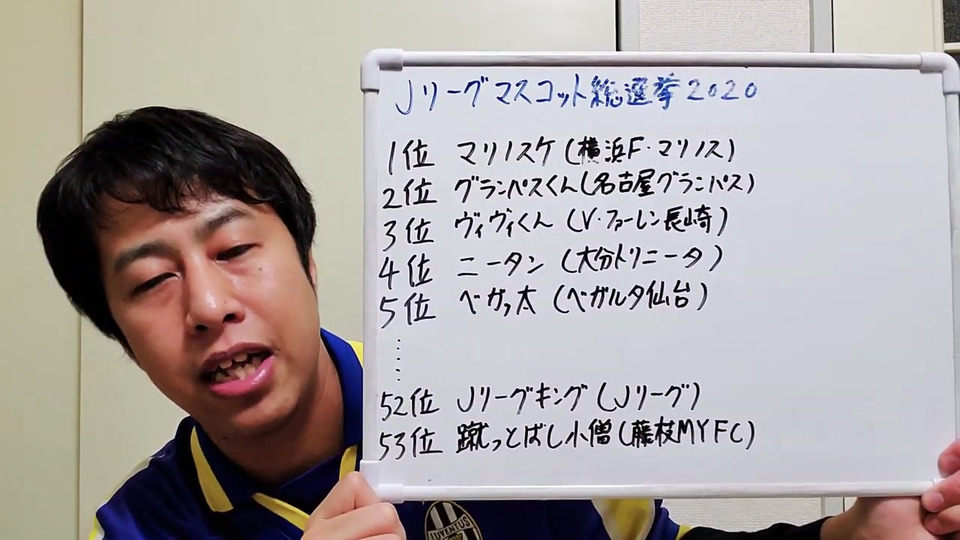 Jリーグマスコット総選挙2020
1位 マリノスケ(横浜F・マリノス)
2位 グランパスくん(名古屋グランパス)
3位 ヴィヴィくん(V・ファーレン長崎)
4位 ニータン(大分トリニータ)
5位 ベガッ太(ベガルタ仙台)
⋮
52位 Jリーグキング(Jリーグ)
53位 蹴っとばし小僧(藤枝MYFC)
JUVENTUS